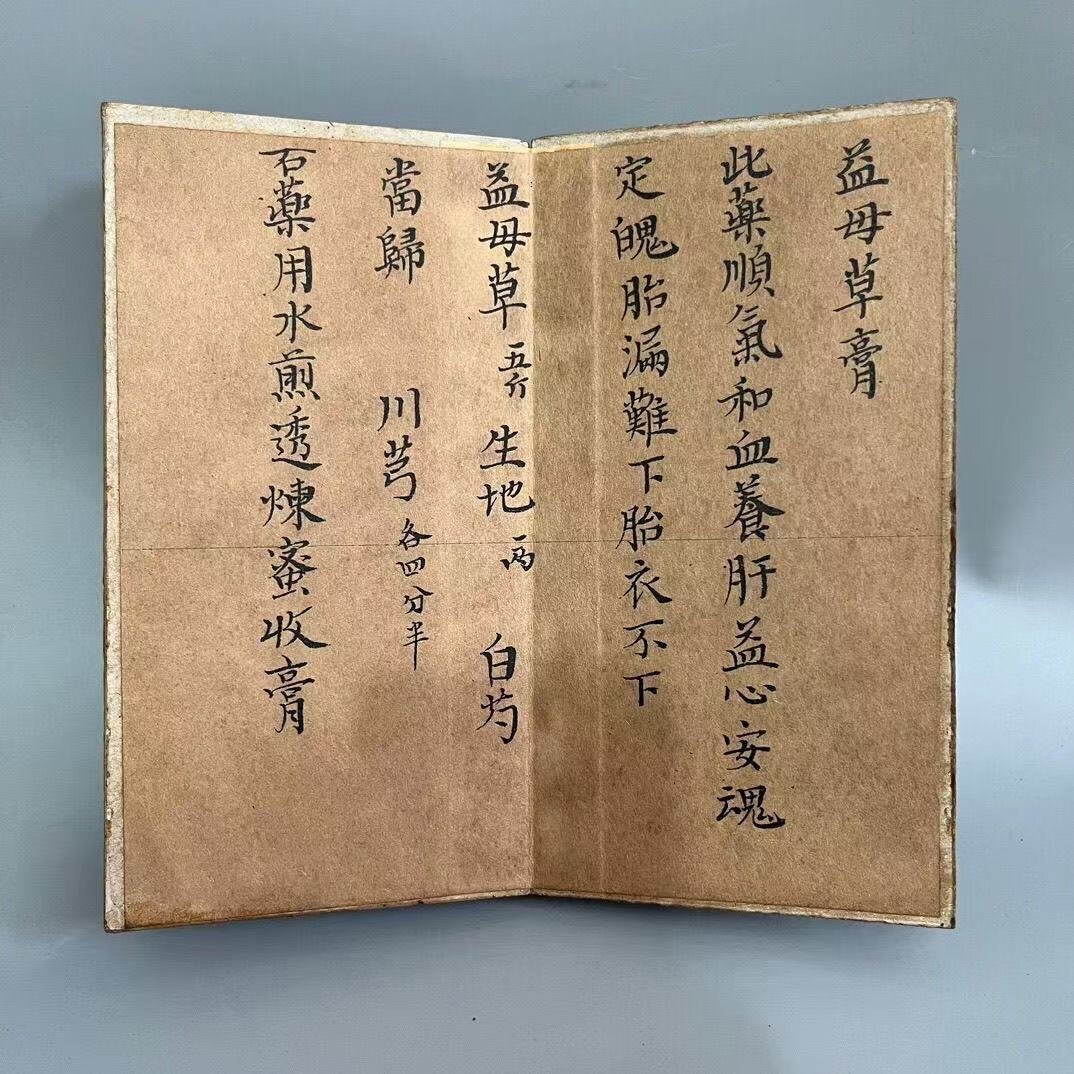 益母草膏
此藥順氣和血養肝益心安魂
定魄胎漏難下胎衣不下
益母草五斤 生地 兩 白芍
當歸 川芎各四分半
石藥用水煎透煉蜜收膏